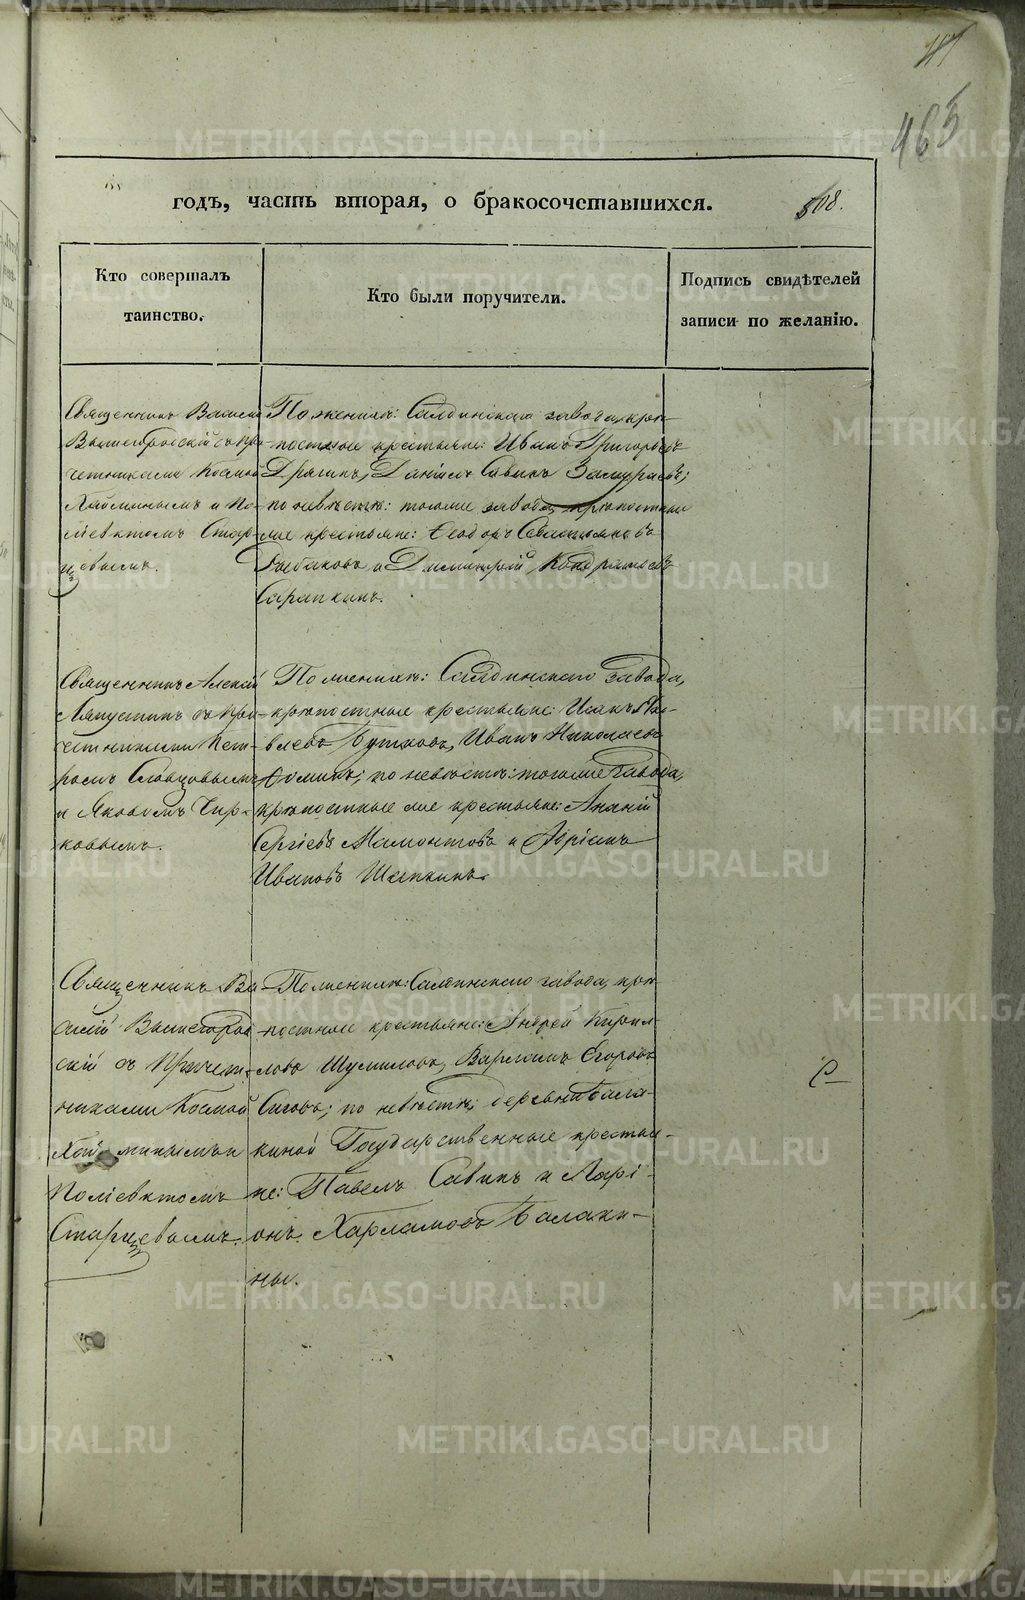 465
годъ, часть вторая, о бракосочетавшихся.
508.
Кто совершалъ
таинство.
Кто были поручители.
Подпись свидѣтелей
записи по желанію.
Священникъ Василій
Вышегородскій съ при-
четниками Космой
и По-
ліевктомъ Стар-
цевымъ.
По женихѣ: Салдинскаго завода крѣ-
постные крестьяне: Иванъ Григорьевъ
Данило Савинъ
по невѣстѣ: тогоже завода крѣпостные
же крестьяне: Ѳеодоръ
Рыбаковъ и Димитрій Кондратьевъ
Сараткинъ.
Священникъ Алексій
Ляпустинъ съ при-
четниками Пет-
ромъ Словцовымъ
и Яковомъ Чир-
ковымъ.
По женихѣ: Салдинскаго завода,
крѣпостные крестьяне: Исакъ Па-
влевъ Бутаковъ, Иванъ Николаевъ
Ѳоминъ; по невѣстѣ: тогоже завода,
крѣпостные же крестьяне: Ананій
Сергіевъ Мамонтовъ и Адріанъ
Ивановъ Шапкинъ.
Священникъ Ва-
силій Вышегород-
скій съ причет-
никами Космой
Поліевктомъ
Старцевымъ.
По женихѣ: Салдинскаго завода, крѣ-
постные крестьяне: Андрей Кирил-
ловъ Шумиловъ, Варламъ Егоровъ
Сиговъ; по невѣстѣ: деревни Бала-
киной Государственные крестья-
не: Павелъ Савинъ и Ларі-
онъ Харламовъ Балаки-
ны.
METRIKI.GASO-URAL.RU